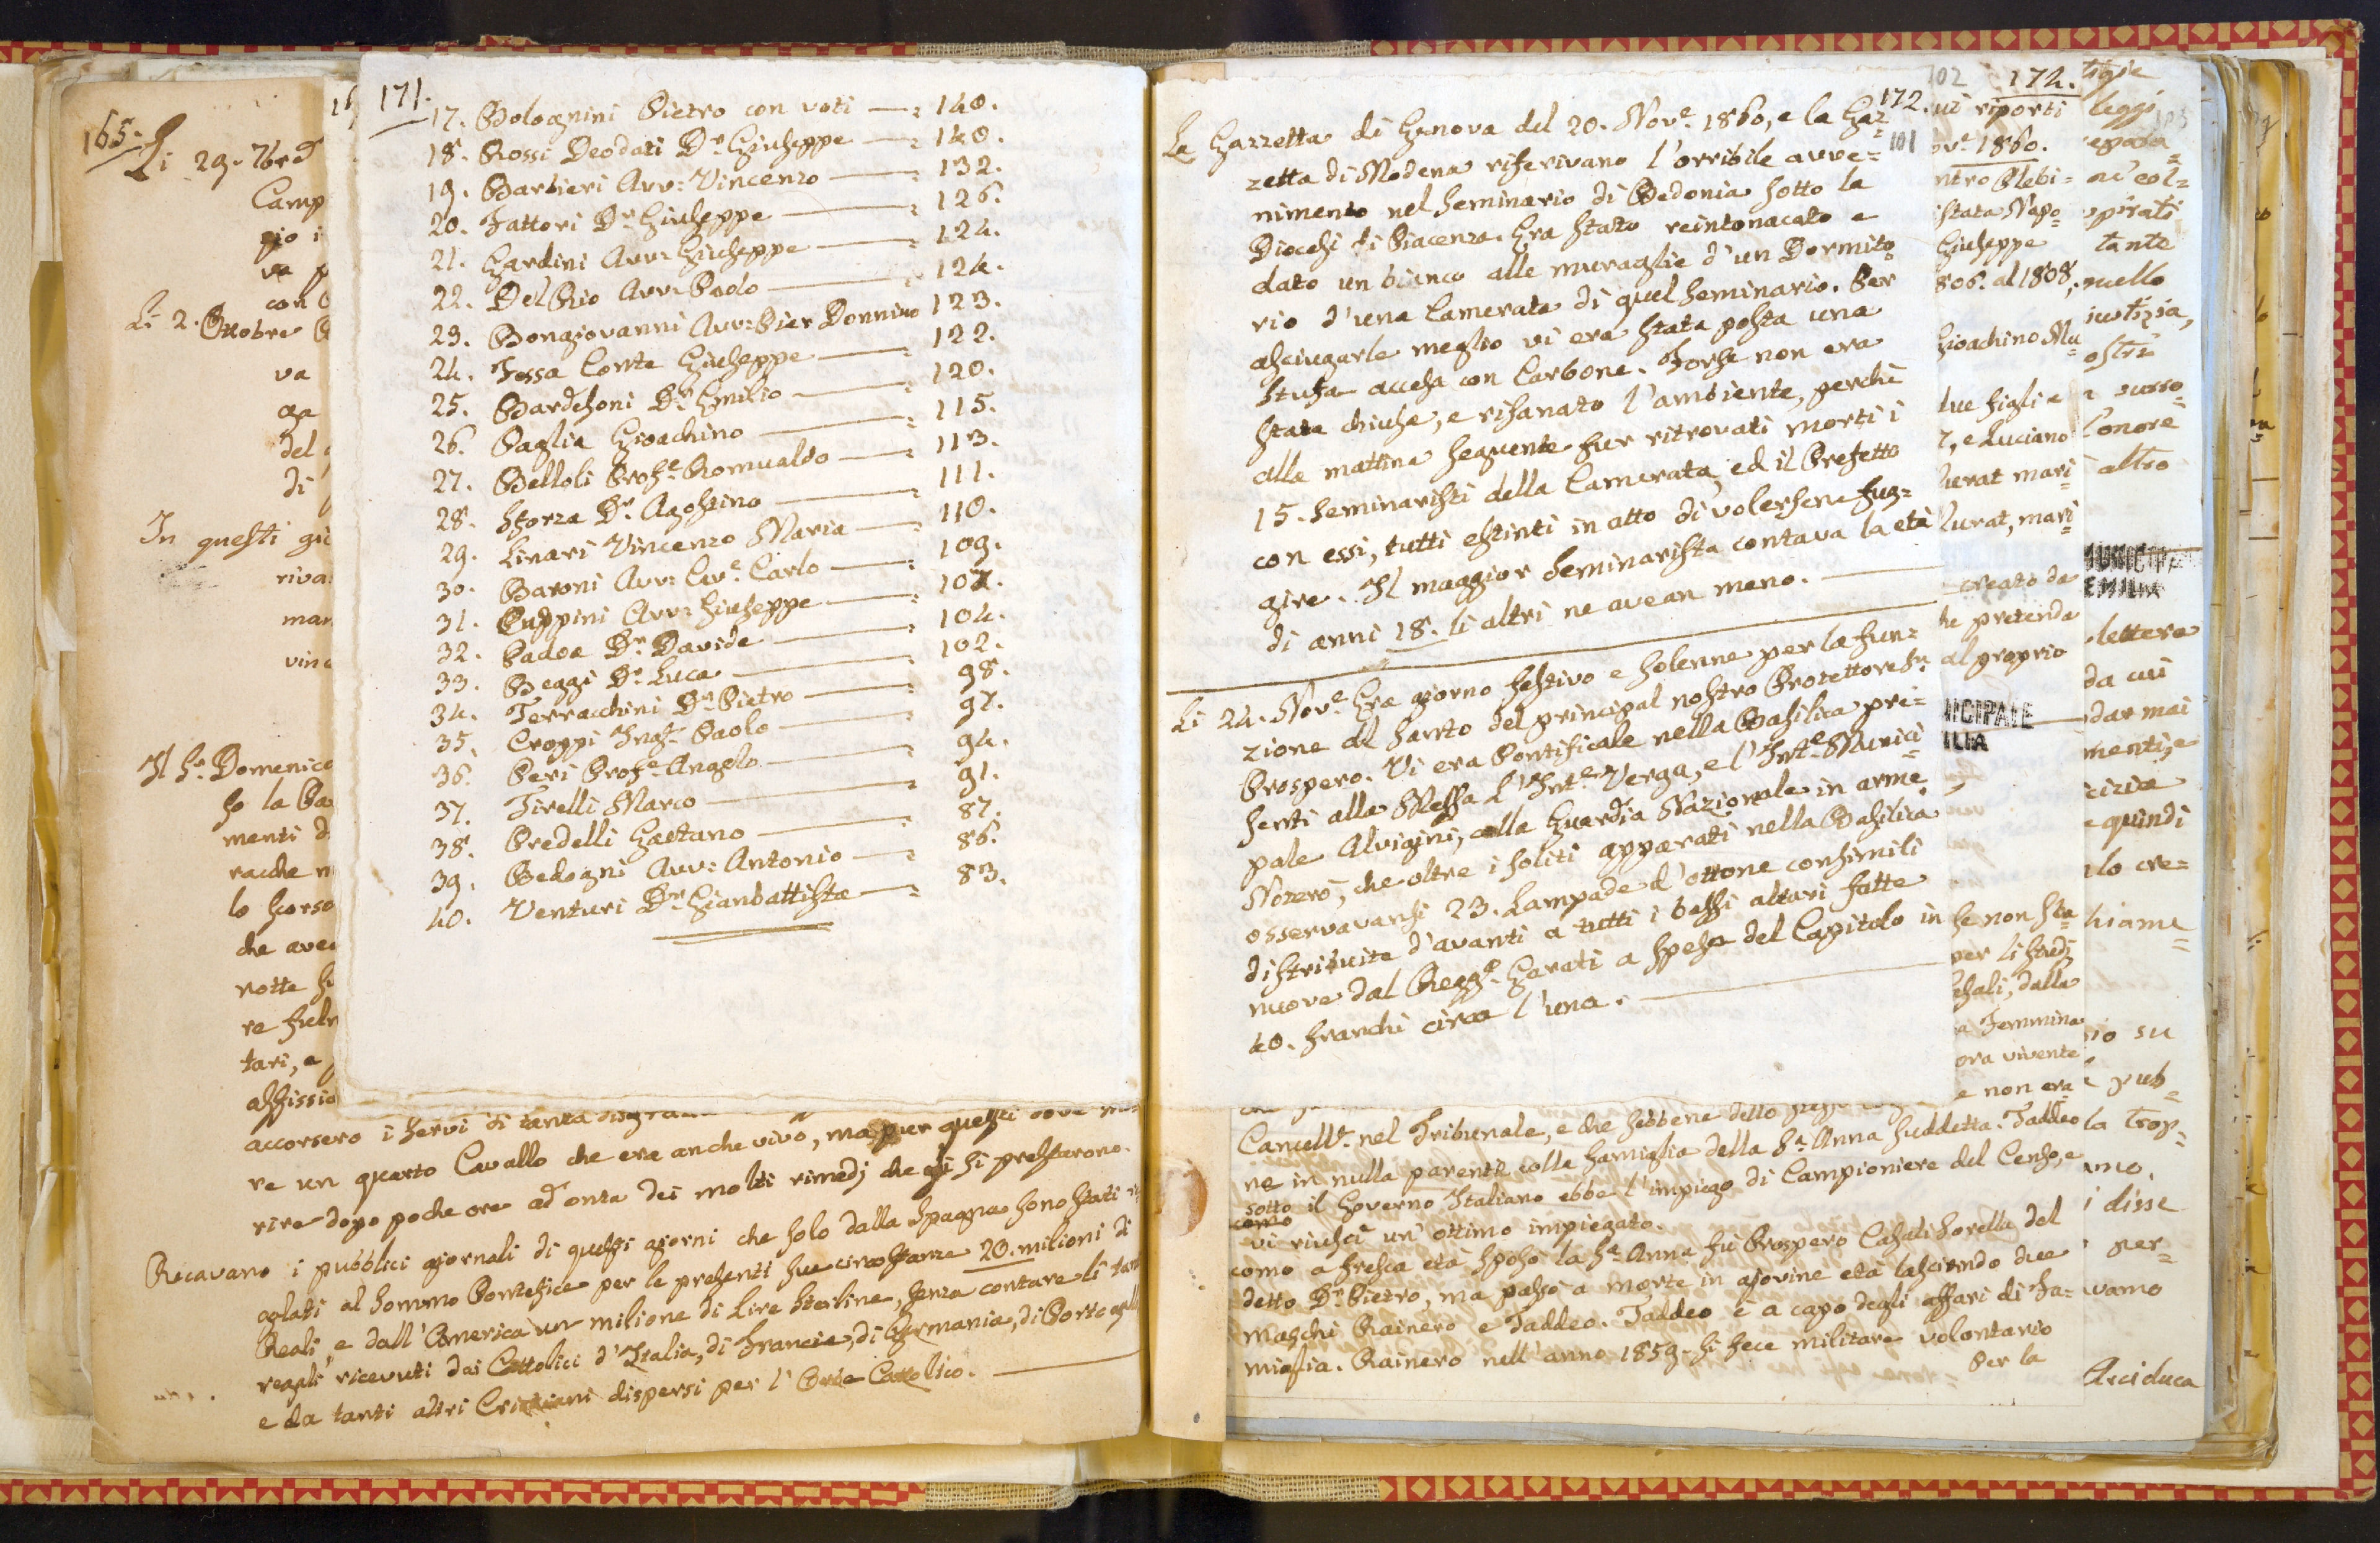 165.
Li 29. 7bre
Camp
gio i
va p
con
Li 2. Ottobre
va
ga
del
di
In questi gio
riva
man
vinc
Il Sr. Domenico
so la Pa
menti d
racche n
lo scorso
che avea
notte
re fuln
tari, e
affissio
accorsero i servi di tanta disgra
re un quarto Cavallo che era anche vivo, ma pur questi dove
rire dopo poche ore ad onta dei molti rimedj che gli si prestarono.
Recavano i pubblici giornali di questi giorni che solo dalla Spagna sono stati
glati al sommo Pontefice per le presenti sue circostanze 20. milioni di
Reali, e dall'America un milione di Lire Sterline, senza contare li tanti
regali ricevuti dai Cattolici d'Italia, di Francia, di Germania, di Portogallo
e da tanti altri Cristiani dispersi per l'Orbe Cattolico.
171.
17. Bolognini Pietro con voti —: 140.
18. Rossi Deodati Dr. Giuseppe —: 140.
19. Barbieri Avv: Vincenzo —: 132.
20. Fattori Dr. Giuseppe —: 126.
21. Gardini Avv: Giuseppe —: 124.
22. Del Rio Avv: Paolo —: 124.
23. Bongiovanni Avv: Pier Donnino 123.
24. Fossa Conte Giuseppe —: 122.
25. Bardesoni Dr. Emilio —: 120.
26. Paglia Gioachino —: 115.
27. Belloli Profe. Romualdo —: 113.
28. Sforza Dr. Agostino —: 111.
29. Linari Vincenzo Maria —: 110.
30. Baroni Avv: Cave. Carlo —: 109.
31. Puppini Avv: Giuseppe —: 107.
32. Padoa Dr. Davide —: 104.
33. Beggi Dr. Luca —: 102.
34. Terracchini Dr. Pietro —: 98.
35. Croppi Ingr. Paolo —: 97.
36. Peri Profe. Angelo —: 94.
37. Tirelli Marco —: 91.
38. Predelli Gaetano —: 87.
39. Bedogni Avv: Antonio —: 86.
40. Venturi Dr. Gianbattista —: 83.
172.
101
La Gazzetta di Genova del 20. Nove. 1860, e la Gaz=
zetta di Modena riferivano l'orribile avve=
nimento nel Seminario di Bedonia sotto la
Diocesi di Piacenza. Era stato reintonacato e
dato un bianco alle muraglie d'un Dormito=
rio d'una Camerata di quel Seminario. Per
asciugarle meglio vi era stata posta una
Stufa accesa con Carbone. Forse non era
stata chiusa, e risanato l'ambiente, perchè
alla mattina seguente fur ritrovati morti i
15. Seminaristi della Camerata, ed il Prefetto
con essi, tutti estinti in atto di volersene fug=
gire. Il maggior Seminarista contava la età
di anni 18. li altri ne avean meno.
Li 24. Nove. Era giorno festivo e solenne per la fun=
zione al Santo del principal nostro Protettore Sn.
Prospero. Vi era Pontificale nella Basilica pre=
senti alla Messa L'Inte. Verga, e l'Inte. Munici=
pale Alvigini, colla Guardia Nazionale in arme.
Noterò, che oltre i soliti apparati nella Basilica
osservavansi 23. Lampade d'ottone consimili
distribuite d'avanti a tutti i bassi altari fatte
nuove dal Regge. Garati a spesa del Capitolo in
40. franchi circa l'una.
102
172.
ui riporti
ove. 1860.
ntro Plebi=
istata Napo=
Giuseppe
806. al 1808,
Gioachino Mu
due figli e
, e Luciano
Murat mari=
Murat, mari=
creato da
he pretenda
al proprio
NICIPALE
ILIA
se non sta=
per li studj
sali, dalla
a Femmina
ora vivente
e non era
Cancellr. nel Tribunale, e che sebbene detto
ne in nulla parente colla famiglia della Sa. Anna suddetta. Taddeo
sotto il Governo Italiano ebbe l'impiego di Campioniere del Censo, e
como
vi riuscì un'ottimo impiegato.
como a fresca età sposò la Sa. Anna fù Prospero Casali sorella del
detto Dr. Pietro, ma passò a morte in giovine età lasciando due
maschi Rainero e Taddeo. Taddeo è a capo degli affari di Fa=
miglia. Rainero nell'anno 1859. si fece militare volontario
Per la
tigie
leggi
103
egata=
ni col=
spirati
tante
quello
iustizia,
ostri
n suc­co=
l'onore
altro
MUNICIPA
EMILIA
lettera
da cui
dar mai
menti, e
cizia
e quindi
lo cre=
hiame=
io su
pub=
la trop=
amo.
i disse
per=
vamo
Arciduca